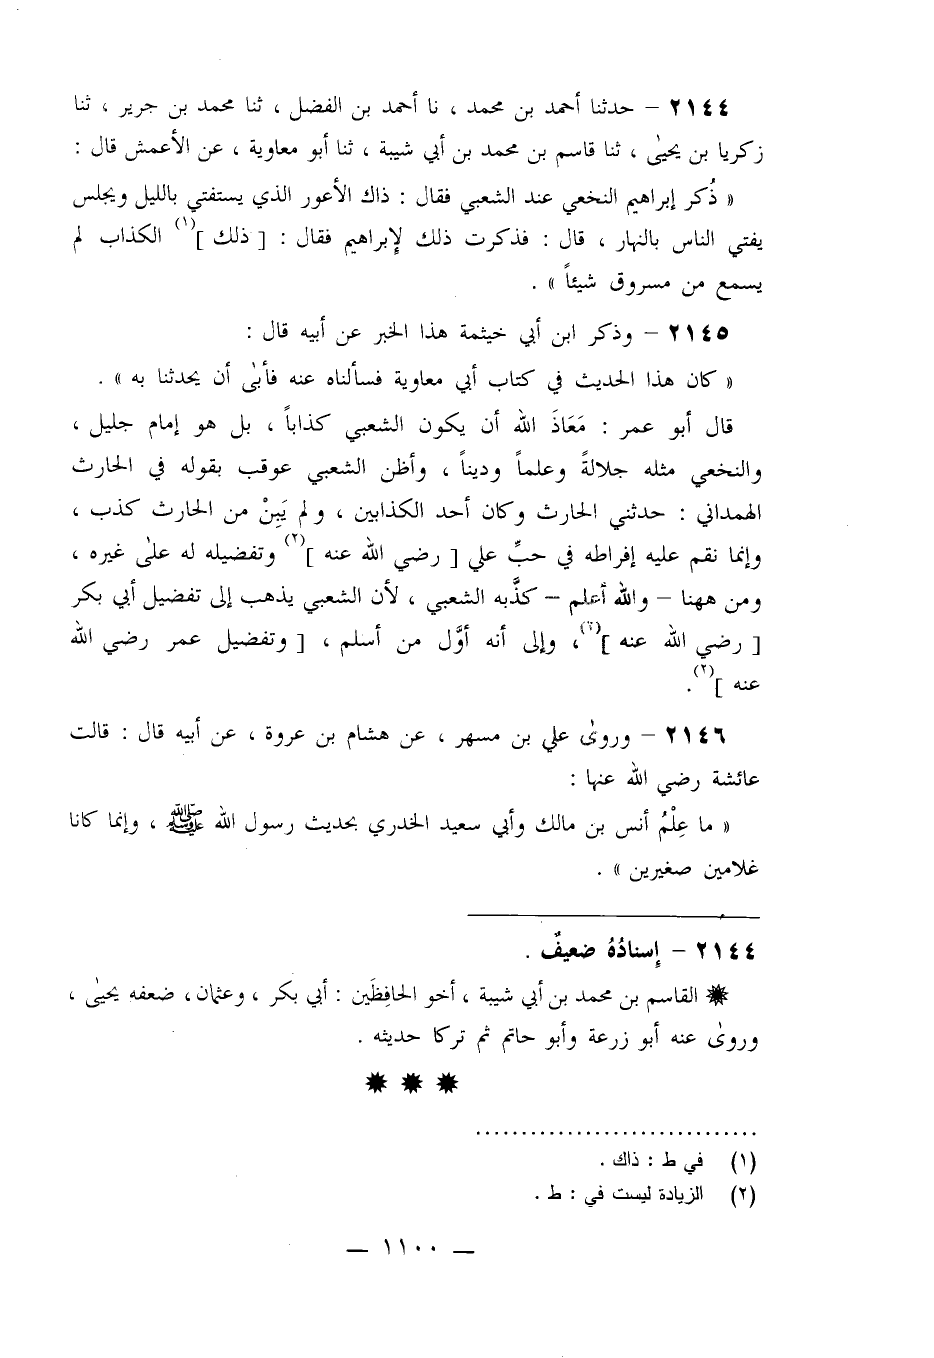 ٢١٤٤ – حدثنا أحمد بن محمد ، نا أحمد بن الفضل ، ثنا محمد بن جرير ، ثنا
زكريا بن يحيىٰ ، ثنا قاسم بن محمد بن أبي شيبة ، ثنا أبو معاوية ، عن الأعمش قال :
« ذُكر إبراهيم النخعي عند الشعبي فقال : ذاك الأعور الذي يستفتي بالليل ويجلس
يفتي الناس بالنهار ، قال : فذكرت ذلك لإبراهيم فقال : [ ذلك ](١) الكذاب لم
يسمع من مسروق شيئاً » .
٢١٤٥ – وذكر ابن أبي خيثمة هذا الخبر عن أبيه قال :
« كان هذا الحديث في كتاب أبي معاوية فسألناه عنه فأبىٰ أن يحدثنا به » .
قال أبو عمر : مَعَاذَ الله أن يكون الشعبي كذاباً ، بل هو إمام جليل ،
والنخعي مثله جلالةً وعلماً وديناً ، وأظن الشعبي عوقب بقوله في الحارث
الهمداني : حدثني الحارث وكان أحد الكذابين ، ولم يَبِنْ من الحارث كذب ،
وإنما نقم عليه إفراطه في حبِّ علي [ رضي الله عنه ](٢) وتفضيله له علىٰ غيره ،
ومن ههنا – والله أعلم – كذَّبه الشعبي ، لأن الشعبي يذهب إلى تفضيل أبي بكر
[ رضي الله عنه ](٢)، وإلى أنه أوَّل من أسلم ، [ وتفضيل عمر رضي الله
عنه ](٢).
٢١٤٦ – وروىٰ علي بن مسهر ، عن هشام بن عروة ، عن أبيه قال : قالت
عائشة رضي الله عنها :
« ما عِلْمُ أنس بن مالك وأبي سعيد الخدري بحديث رسول الله ﷺ ، وإنما كانا
غلامين صغيرين » .
٢١٤٤ – إسنادُهُ ضعيفٌ .
✹ القاسم بن محمد بن أبي شيبة ، أخو الحافِظَين : أبي بكر ، وعثمان، ضعفه يحيىٰ ،
وروىٰ عنه أبو زرعة وأبو حاتم ثم تركا حديثه .
✹ ✹ ✹
...............................
(١) في ط : ذاك .
(٢) الزيادة ليست في : ط .
– ١١٠٠ –